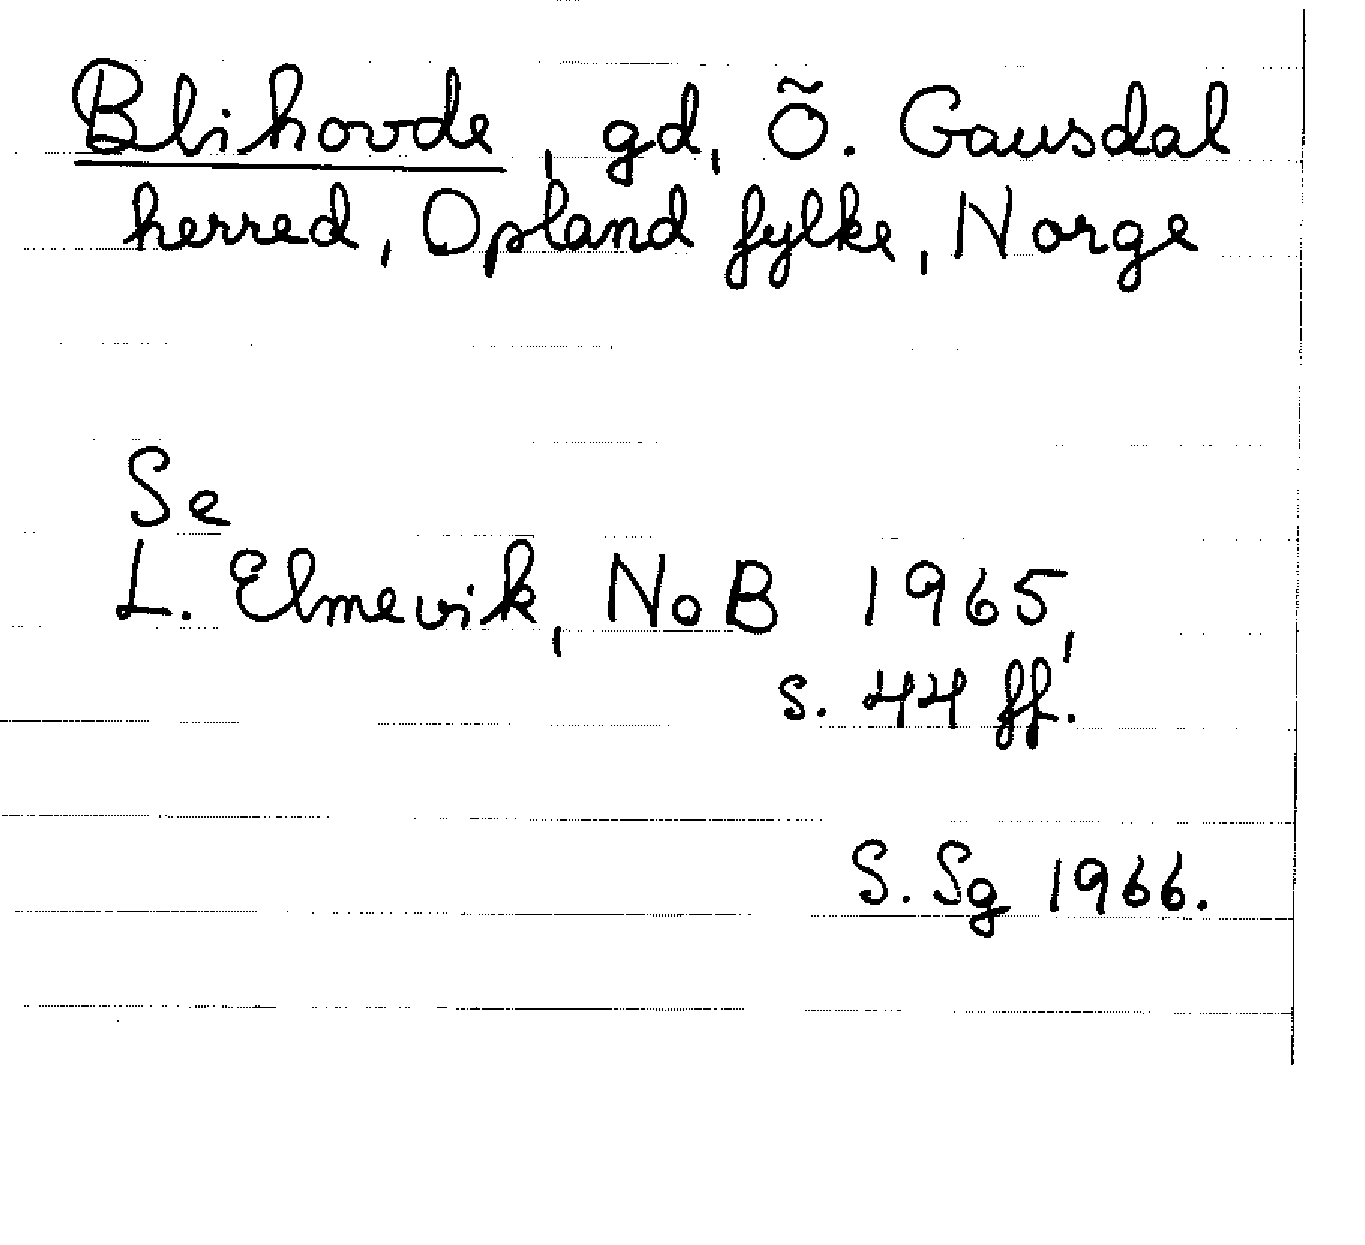 Blihovde, gd, Õ. Gausdal
herred, Opland fylke, Norge
Se
L. Elmevik, NoB 1965,
s. 44 ff.
S. Sg 1966.